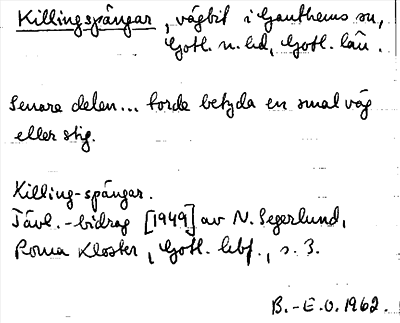 Killingspångar, vägbit i Ganthems sn,
Gotl. n. hd, Gotl. län.
Senare delen... torde betyda en smal väg
eller stig.
Killing-spångar.
Tävl.-bidrag [1949] av N. Segerlund,
Roma Kloster, Gotl. , s. 3.
B.-E.O. 1962.